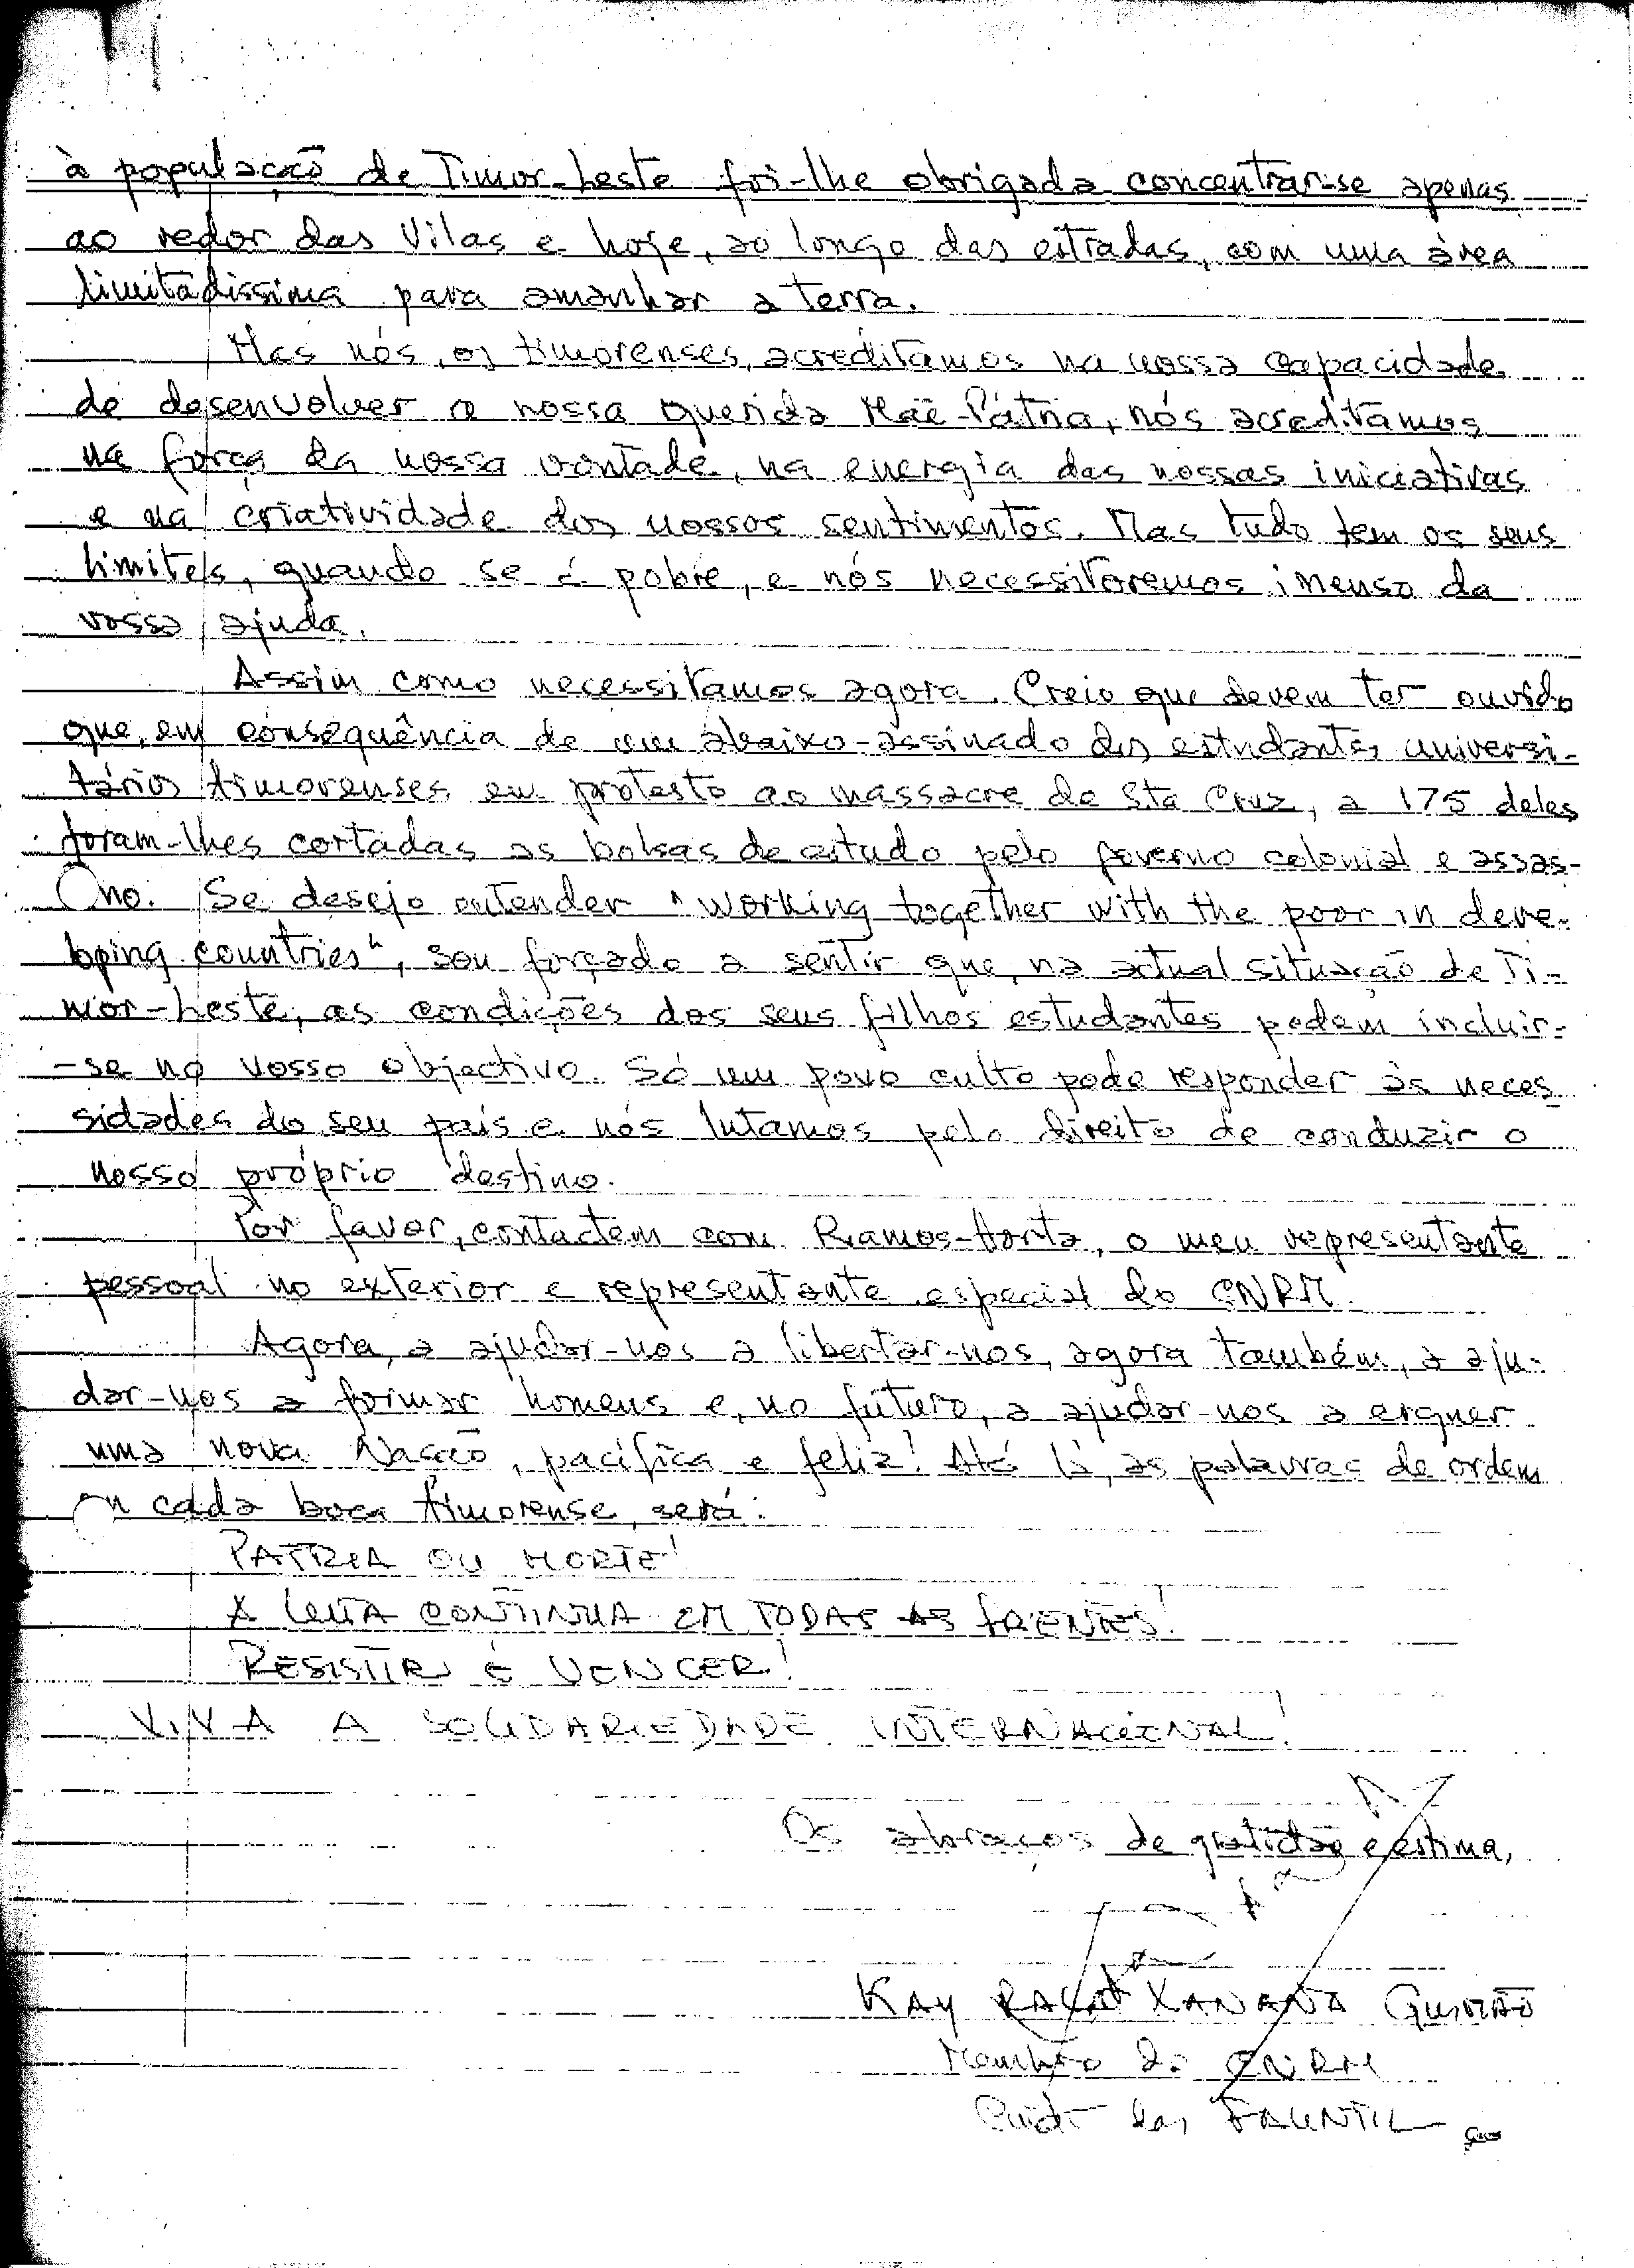 à população de Timor-Leste foi-lhe obrigada concentrar-se apenas
ao redor das Vilas e hoje, ao longo das estradas, com uma área
limitadíssima para amanhar a terra.
Mas nós, os timorenses, acreditamos na nossa capacidade
de desenvolver a nossa querida Mãe-Pátria, nós acreditamos
na força da nossa vontade, na energia das nossas iniciativas
e na criatividade dos nossos sentimentos. Mas tudo tem os seus
limites, quando se é pobre, e nós necessitaremos imenso da
vossa ajuda.
Assim como necessitamos agora. Creio que devem ter ouvido
que, em consequência de um abaixo-assinado dos estudantes universi-
tários timorenses em protesto ao massacre de Sta Cruz, a 175 deles
foram-lhes cortadas as bolsas de estudo pelo governo colonial e assas-
no. Se desejo entender "working together with the poor in deve-
loping countries", sou forçado a sentir que, na actual situação de Ti-
mor-Leste, as condições dos seus filhos estudantes podem incluir-
-se no vosso objectivo. Só um povo culto pode responder às neces
sidades do seu país e nós lutamos pelo direito de conduzir o
nosso próprio destino.
Por favor, contactem com Ramos-Horta, o meu representante
pessoal no exterior e representante especial do CNRM.
Agora, a ajudar-nos a libertar-nos, agora também, a aju-
dar-nos a formar homens e, no futuro, a ajudar-nos a erguer
uma nova Nação, pacífica e feliz! Até lá, as palavras de ordem
em cada boca timorense, será:
PATRIA OU MORTE!
A LUTA CONTINUA EM TODAS AS FRENTES!
RESISTIR É VENCER!
VIVA A SOLIDARIEDADE INTERNACIONAL!
Os abraços de gratidão e estima,
KAY RALA XANANA GUSMÃO
Membro do CNRM
das FALINTIL